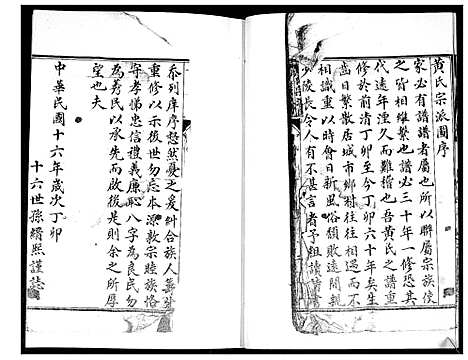 黃氏宗派圖序
家必有譜譜者屬也所以聯屬宗族使
之皆相維繫也譜必三十年一修恐其
代遠年湮久而難稽也吾黃氏之譜重
修於前清丁卯至今丁卯六十年矣生
齒日繁散居城市鄉村往往相遇而不
相識重以時會日新風俗頹敗遠聞親
陵長令人有不甚言者予粗讀
忝列庠序愁然憂之爰糾合族人
重修以示後世勿忘本源敦宗睦族恪
守孝悌忠信禮義廉恥八字為良民勿
為莠民以承先而啟後是則余之所厚
望也夫
中華民國十六年歲次丁卯
十六世孫縉熙謹誌